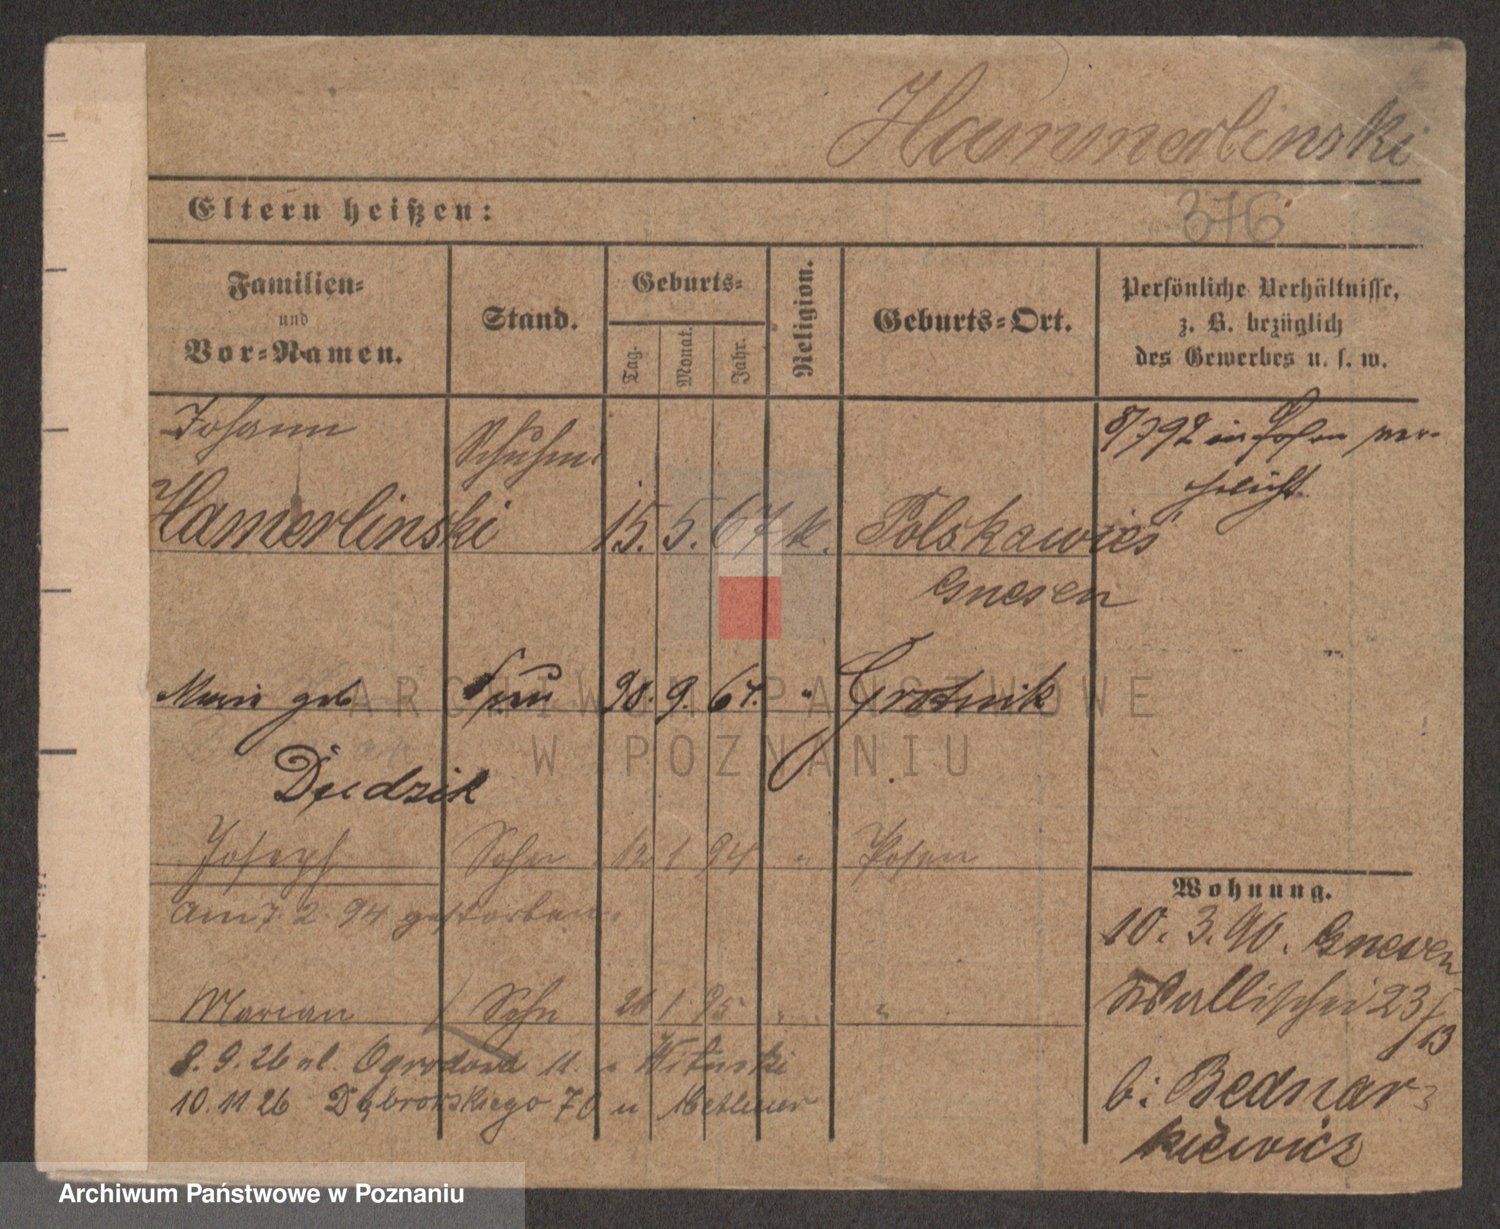 Hammerlinski
Eltern heißen:
376
Familien-
und
Vor-Namen.
Stand.
Geburts-
Tag.
Monat.
Jahr.
Religion.
Geburts-Ort.
Persönliche Verhältnisse,
z. B. bezüglich
des Gewerbes u. s. w.
Johann Schuhm.
Hamerlinski 15. 5. 67 k. Polskawies
Gnesen
8/7 92 in Posen ver-
ehelicht.
Marie geb Frau 9. 67. " Grotnik
Dudzik
Joseph Sohn 1 94 " Posen
Am 7. 2. 94 gestorben.
Marian Sohn 26 1 95 " "
8. 9. 26 ul. Ogrodowa 11. u
10. 11 26 Dąbrowskiego 70 u
Wohnung.
10. 3. 96. Gnesen
Wallischei 23/13
b: Bednar-
kiewicz
ARCHIWUM PAŃSTWOWE
W POZNANIU
Archiwum Państwowe w Poznaniu